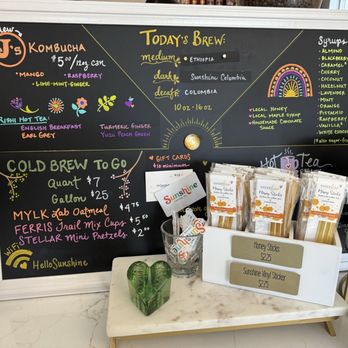 J's
KOMBUCHA
$5.00/12oz can
• MANGO • RASPBERRY
• LIME-MINT-GINGER
TODAY'S BREW:
medium ETHIOPIA
dark Sunshine Colombia
decaf COLOMBIA
10 oz - 16 oz
Syrups
• ALMOND
• CARAMEL
• HAZELNUT
• LAVENDER
• MINT
• VANILLA
• LOCAL HONEY
• LOCAL MAPLE SYRUP
• HOMEMADE CHOCOLATE
SAUCE
HOT TEA:
ENGLISH BREAKFAST
EARL GREY
TURMERIC GINGER
YUZU PEACH GREEN
COLD BREW TO GO
Quart $7
Gallon $25
MYLK Lab Oatmeal $4
FERRIS Trail Mix Cups $5.50
STELLAR Mini Pretzels $2.00
WiFi
HelloSunshine
• GIFT CARDS
$10 minimum
Hot Tea
Sunshine
Honey Sticks
Honey Sticks
Honey Sticks
Honey Sticks
$2.25
Sunshine Vinyl Sticker
$2.75